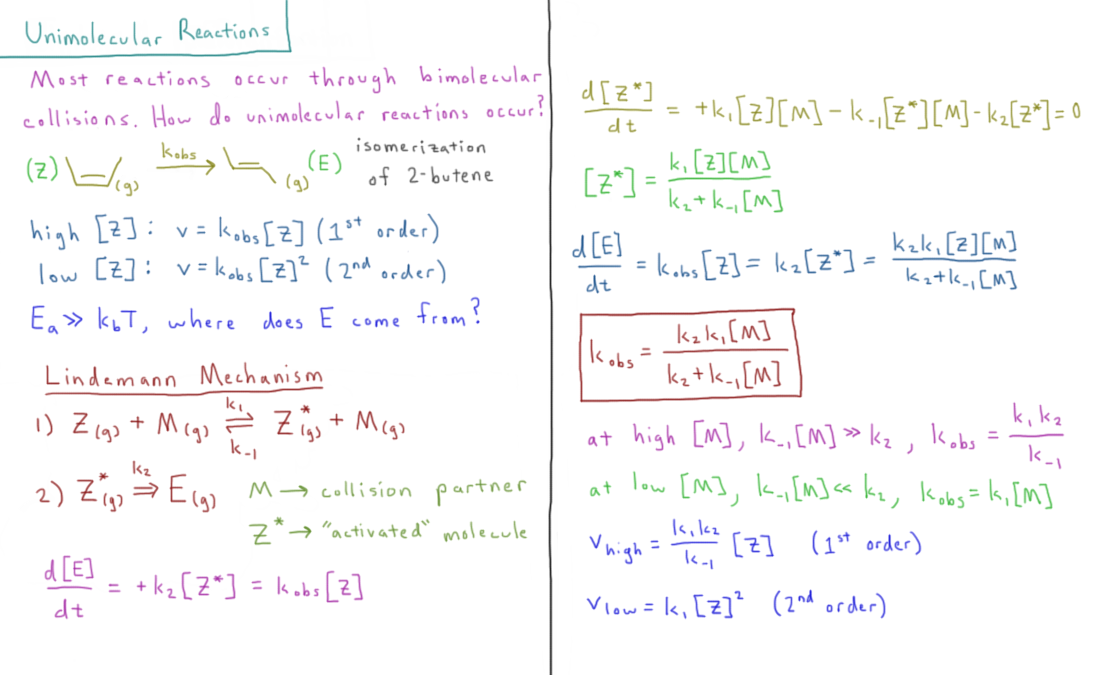 Unimolecular Reactions
Most reactions occur through bimolecular
collisions. How do unimolecular reactions occur?
(Z) (g) k_obs → (E) (g) isomerization
of 2-butene
high [Z]: v = k_obs[Z] (1st order)
low [Z]: v = k_obs[Z]² (2nd order)
E_a >> k_bT, where does E come from?
Lindemann Mechanism
1) Z(g) + M(g) ⇌ Z*(g) + M(g) k_1 k_-1
2) Z*(g) ⇒ E(g) k_2
M → collision partner
Z* → "activated" molecule
d[E]/dt = +k_2[Z*] = k_obs[Z]
d[Z*]/dt = +k_1[Z][M] - k_-1[Z*][M] - k_2[Z*] = 0
[Z*] = k_1[Z][M] / k_2+k_-1[M]
d[E]/dt = k_obs[Z] = k_2[Z*] = k_2k_1[Z][M] / k_2+k_-1[M]
k_obs = k_2k_1[M] / k_2+k_-1[M]
at high [M], k_-1[M] >> k_2, k_obs = k_1k_2 / k_-1
at low [M], k_-1[M] << k_2, k_obs = k_1[M]
v_high = k_1k_2 / k_-1 [Z] (1st order)
v_low = k_1[Z]² (2nd order)